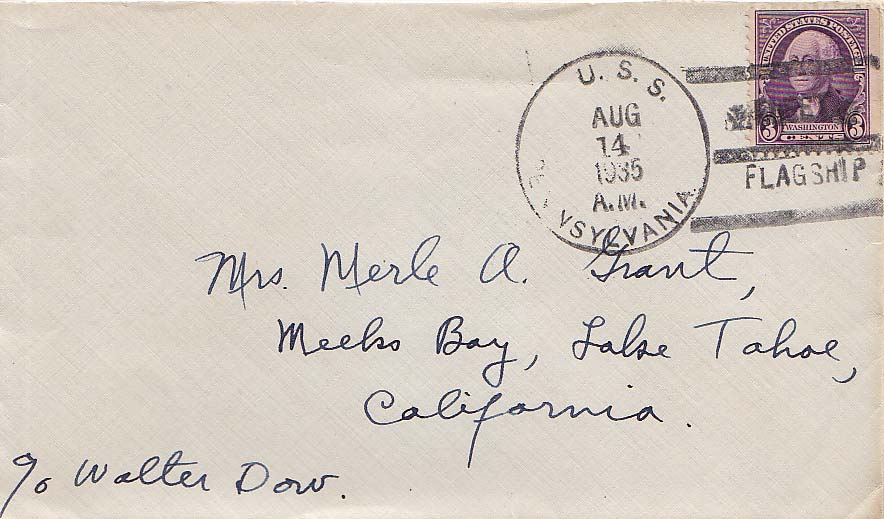 U. S. S.
AUG
14
1935
A.M.
NSYLVANIA
UNITED STATES POSTAGE
3 WASHINGTON 3
CENTS
FLAGSHIP
Mrs. Merle A. Grant,
Meeks Bay, Lake Tahoe,
California.
c/o Walter Dow.